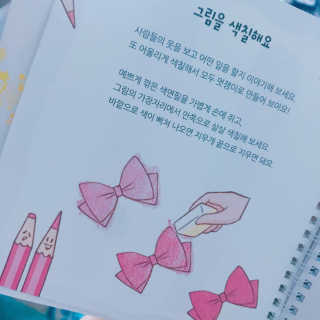 그림을 색칠해요
사람들의 옷을 보고 어떤 일을 할지 이야기해 보세요.
또 어울리게 색칠해서 모두 멋쟁이로 만들어 보아요!
예쁘게 깎은 색연필을 가볍게 손에 쥐고,
그림의 가장자리에서 안쪽으로 살살 색칠해 보세요.
바깥으로 색이 삐져 나오면 지우개 끝으로 지우면 돼요.